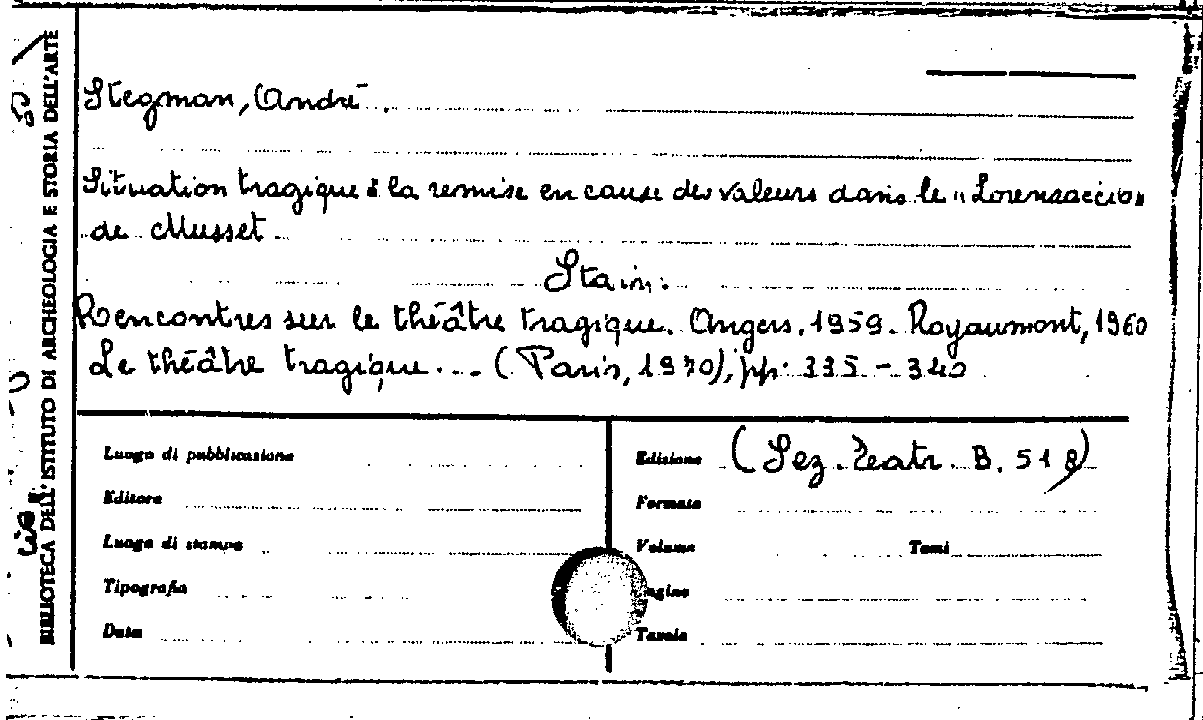 BIBLIOTECA DELL'ISTITUTO DI ARCHEOLOGIA E STORIA DELL'ARTE
Stegman, André.
Situation tragique à la remise en cause des valeurs dans le "Lorenzaccio"
de Musset
Sta in:
Rencontres sur le théâtre tragique. Angers. 1959. Royaumont, 1960
Le théâtre tragique... (Paris, 1970), pp. 335 - 340
Luogo di pubblicazione
Editore
Luogo di stampa
Tipografia
Data
Edizione (Sez. Teatr. B. 518)
Formato
Volume Tomi
Pagine
Tavole